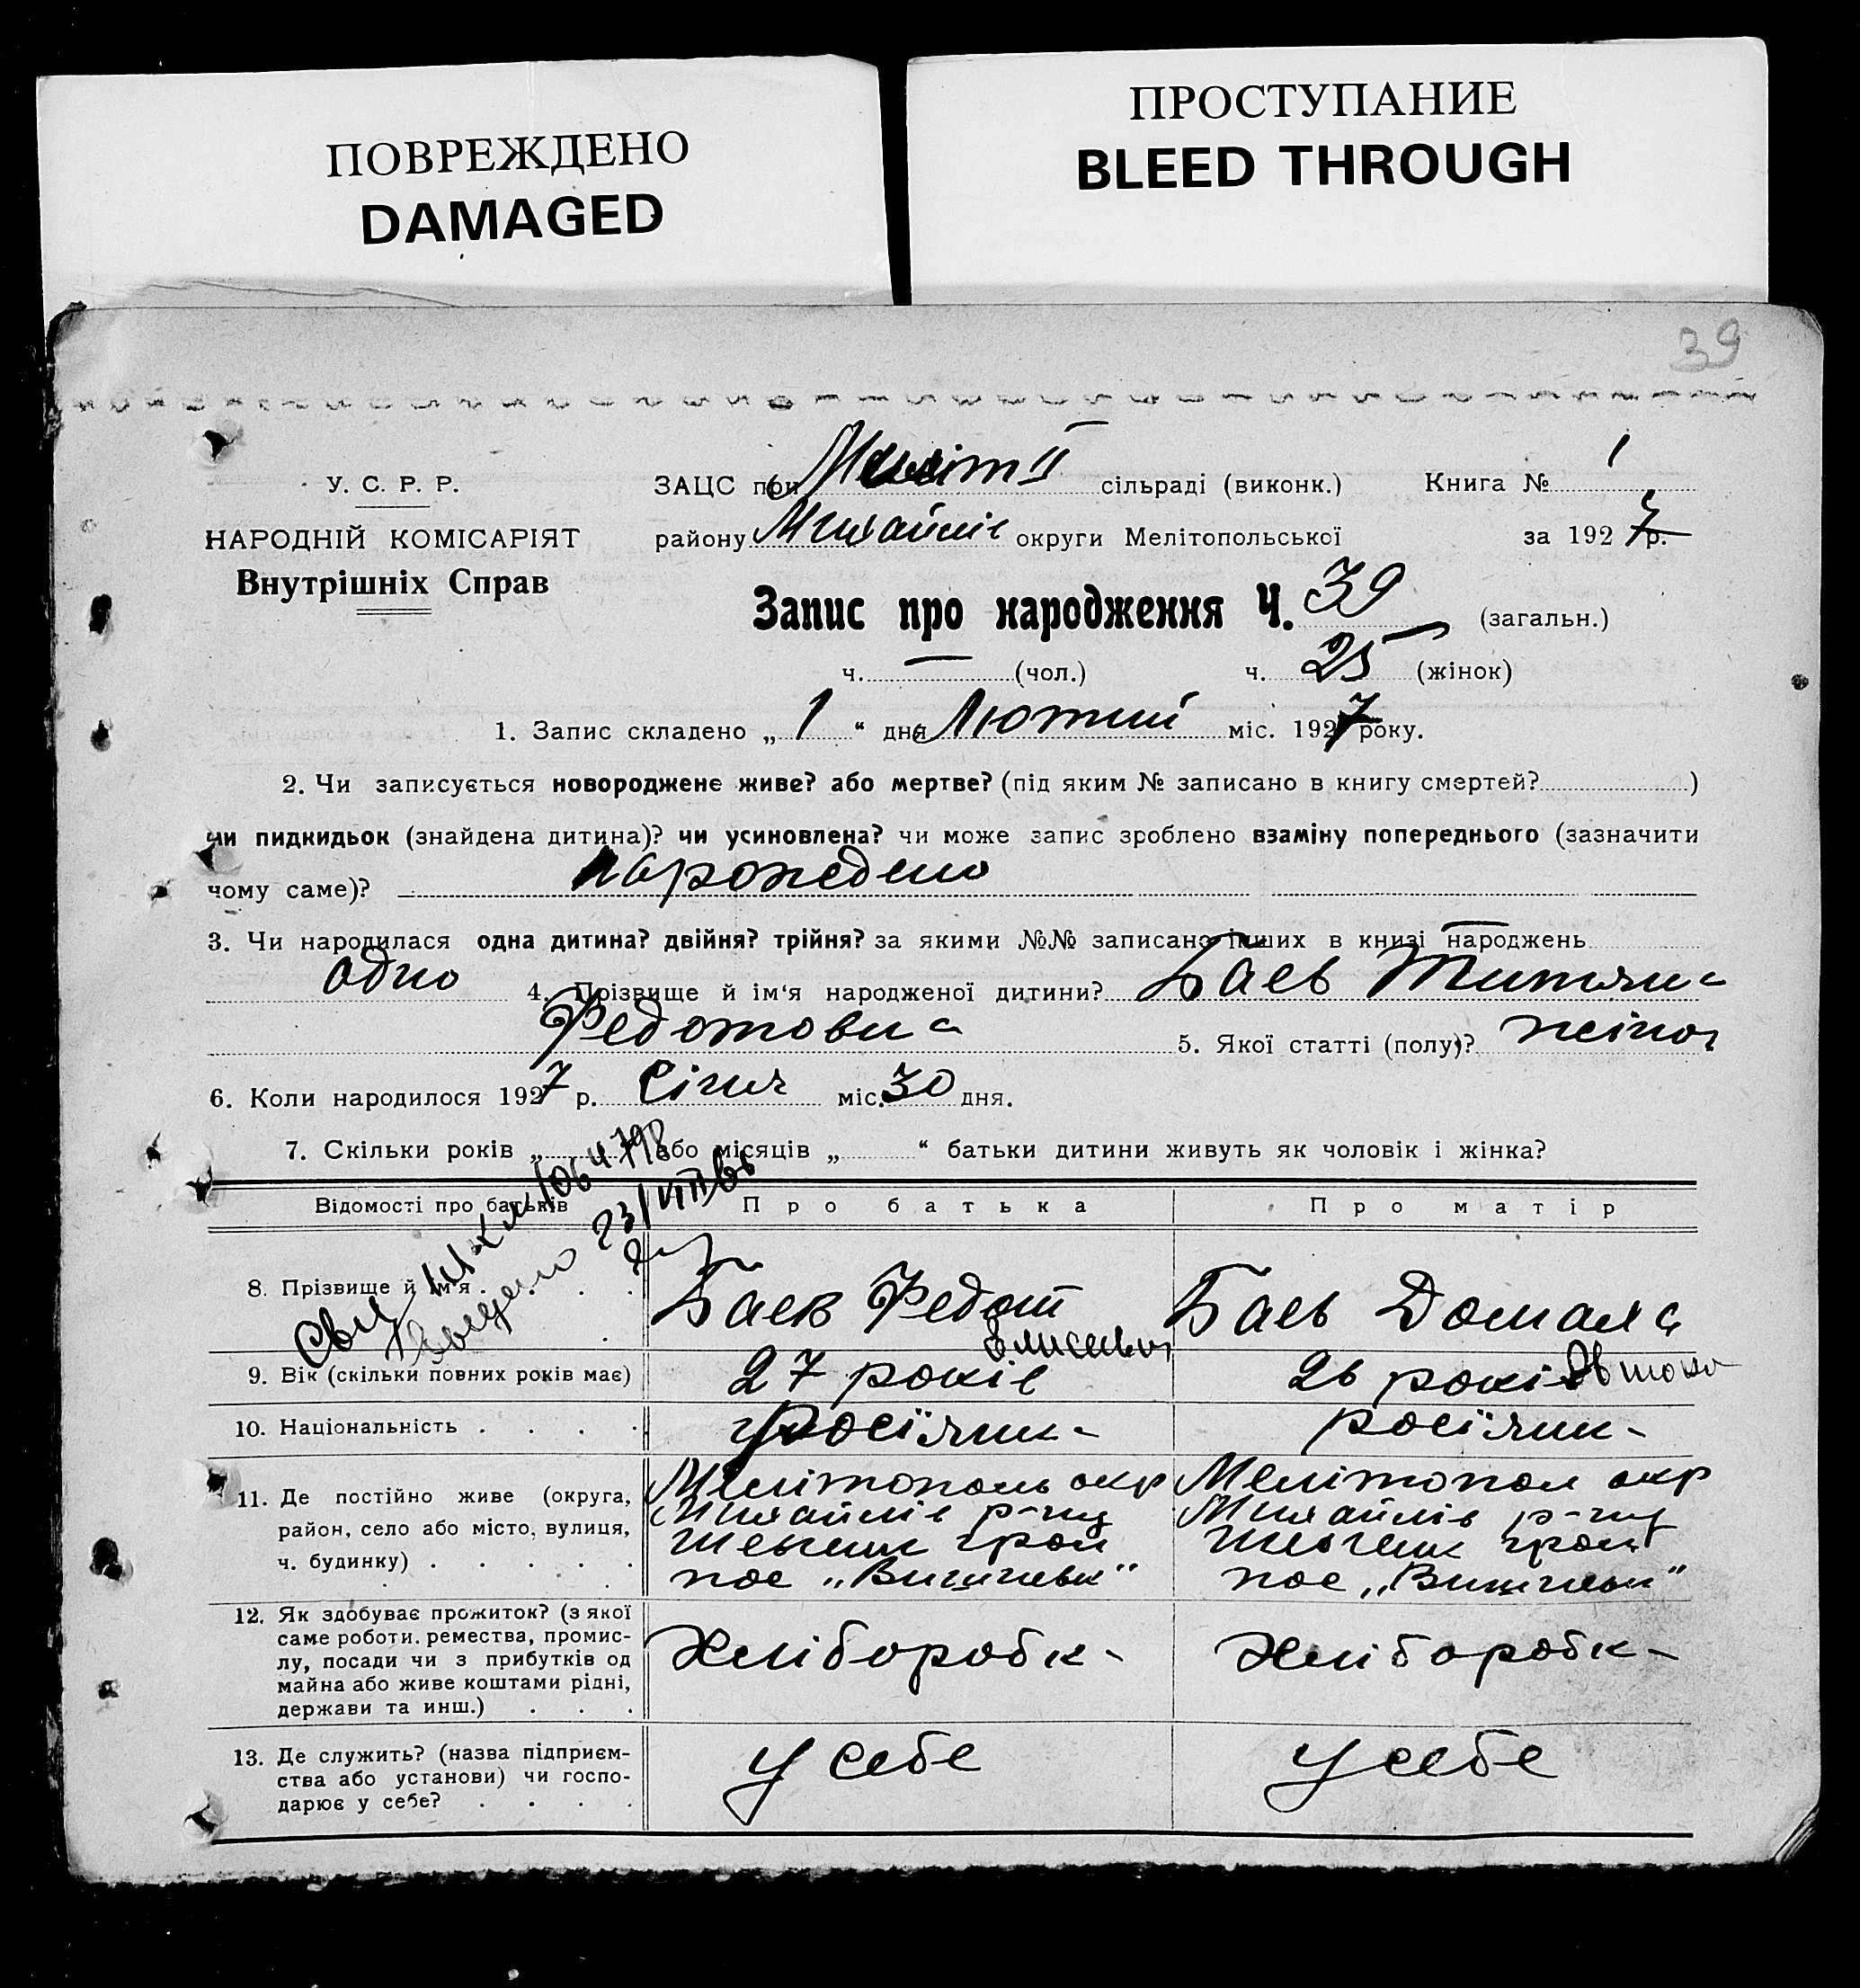 ПОВРЕЖДЕНО
DAMAGED
ПРОСТУПАНИЕ
BLEED THROUGH
39
У. С. Р. Р.
НАРОДНІЙ КОМІСАРІЯТ
Внутрішніх Справ
ЗАЦС при II сільраді (виконк.) Книга № 1
району Михайлів округи Мелітопольської за 1927 р.
Запис про народження Ч. 39 (загальн.)
ч. — (чол.) ч. 25 (жінок)
1. Запис складено „ 1 “ дня Лютий міс. 1927 року.
2. Чи записується новороджене живе? або мертве? (під яким № записано в книгу смертей? )
чи пидкидьок (знайдена дитина)? чи усиновлена? чи може запис зроблено взаміну попереднього (зазначити
чому саме)? нарождено
3. Чи народилася одна дитина? двійня? трійня? за якими №№ записано інших в книзі народжень
одно 4. Прізвище й ім‘я народженої дитини? Баев Титяна
Федотовна 5. Якої статті (полу)? жіноч
6. Коли народилося 1927 р. Січня міс. 30 дня.
7. Скільки років „ або місяців „ “ батьки дитини живуть як чоловік і жінка?
Відомості про батьків Про батька Про матір
8. Прізвище й ім‘я . . . . Баев Федот Елисеевич Баев Домаха
9. Вік (скільки повних років має) 27 років 26 років
10. Національність . . . . росіянин росіянин
11. Де постійно живе (округа, Мелітополь окр Мелітопол окр
район, село або місто, вулиця, Михайлів р-ну Михайлів р-ну
ч. будинку) . . . . . пос „ “ пос „ “
12. Як здобуває прожиток? (з якої
саме роботи. ремества, промис-
лу, посади чи з прибутків од Хлібороби Хлібороби
майна або живе коштами рідні,
держави та инш.) . . .
13. Де служить? (назва підприєм- у себе у себе
ства або установи) чи госпо-
дарює у себе? . . . .